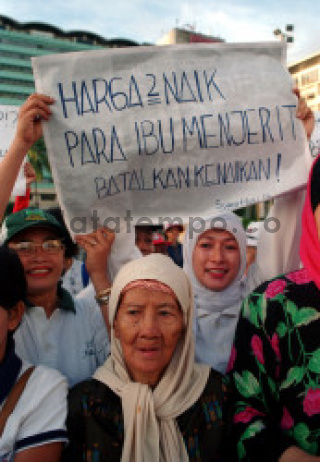 HARGA2 NAIK
PARA IBU MENJERIT
BATALKAN KENAIKAN!
datatempo.co